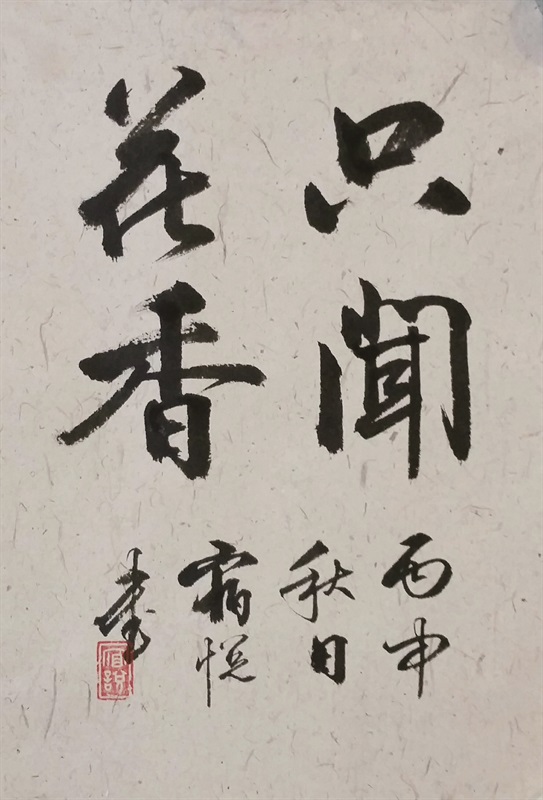 只聞
花香
丙申
秋日
霜悅
書